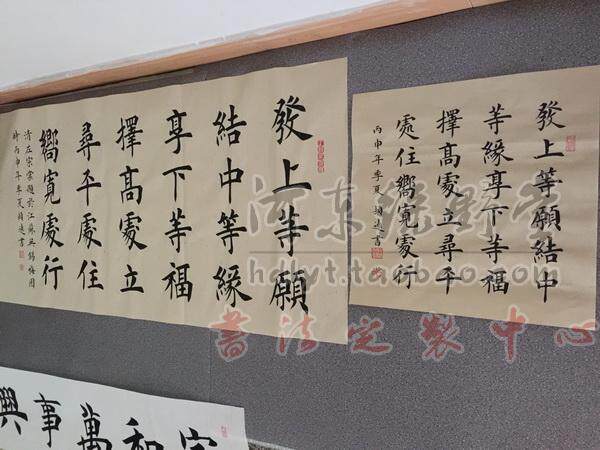 發上等願
結中等緣
享下等福
擇高處立
尋平處住
嚮寬處行
清左宗棠題於江蘇無錫梅園
時丙申年季夏書
發上等願結中
等緣享下等福
擇高處立尋平
處住嚮寬處行
丙申年季夏書
和萬事興
河東綠野堂
hdlyt.taobao.com
書法定製中心